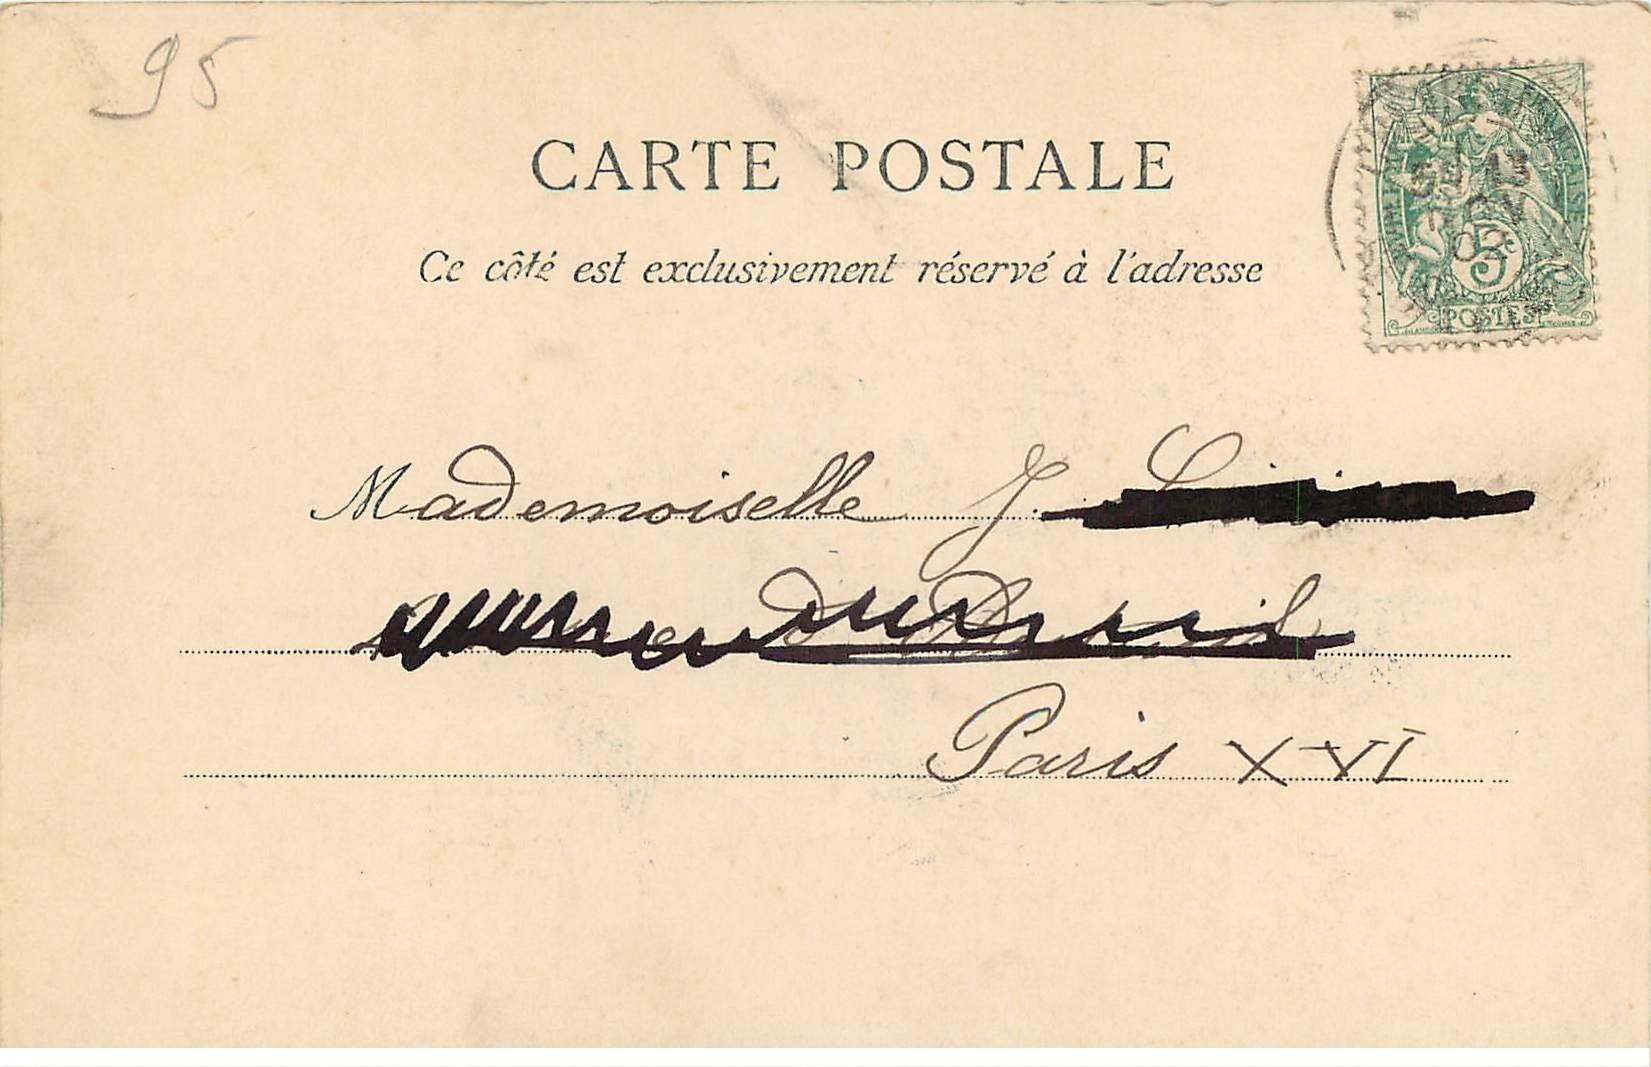 95
CARTE POSTALE
Ce côté est exclusivement réservé à l'adresse
5
POSTES
Mademoiselle J.
Paris XVI